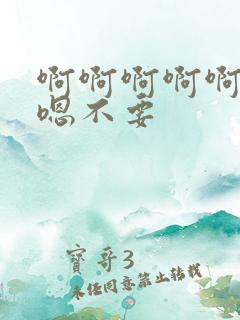 啊啊啊啊啊
嗯不要
寳哥3
未经同意禁止转载